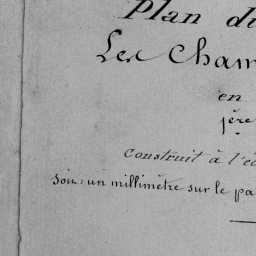 Plan du
Les Cham
en
1ère
Construit à l'éc
soit: un millimètre sur le pa